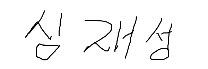 심재성